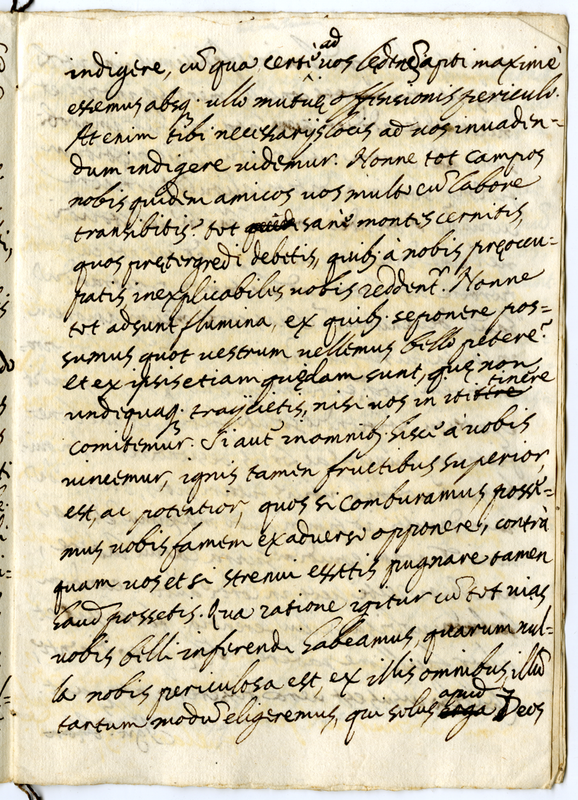 indigere, cū qua certè ad vos lędendos apti maximè
essemus absq; ullo mutuę offensionis periculo.
At enim tibi necessarijs locis ad vos invaden-
dum indigere videmur. Nonne tot campos
nobis quidem amicos vos multo cū labore
transibitis? tot quid sanè montis cernitis,
quos prętergredi debetis, quibs à nobis pręoccu-
patis inexplicabiles vobis reddentr. Nonne
tot adsunt flumina, ex quibs seponere pos=
sumus quot vestrum vellemus bello petere?
et ex ipsis etiam quędam sunt, quę non
undiquaq; traijcietis, nisi vos in itinere
comitemur. Si autē in omnibs hisce à vobis
vincemur, ignis tamen fructibus superior,
est, ac potentior, quos si comburamus possu=
mus vobis famem ex adverso opponere, contrà
quam vos etsi strenui essetis pugnare tamen
haud possetis. Qua ratione igitur cū tot vias
vobis belli inferendi habeamus, quarum nul=
la nobis periculosa est, ex illis omnibus illū
tantum modū eligeremus, qui solus apud Deos